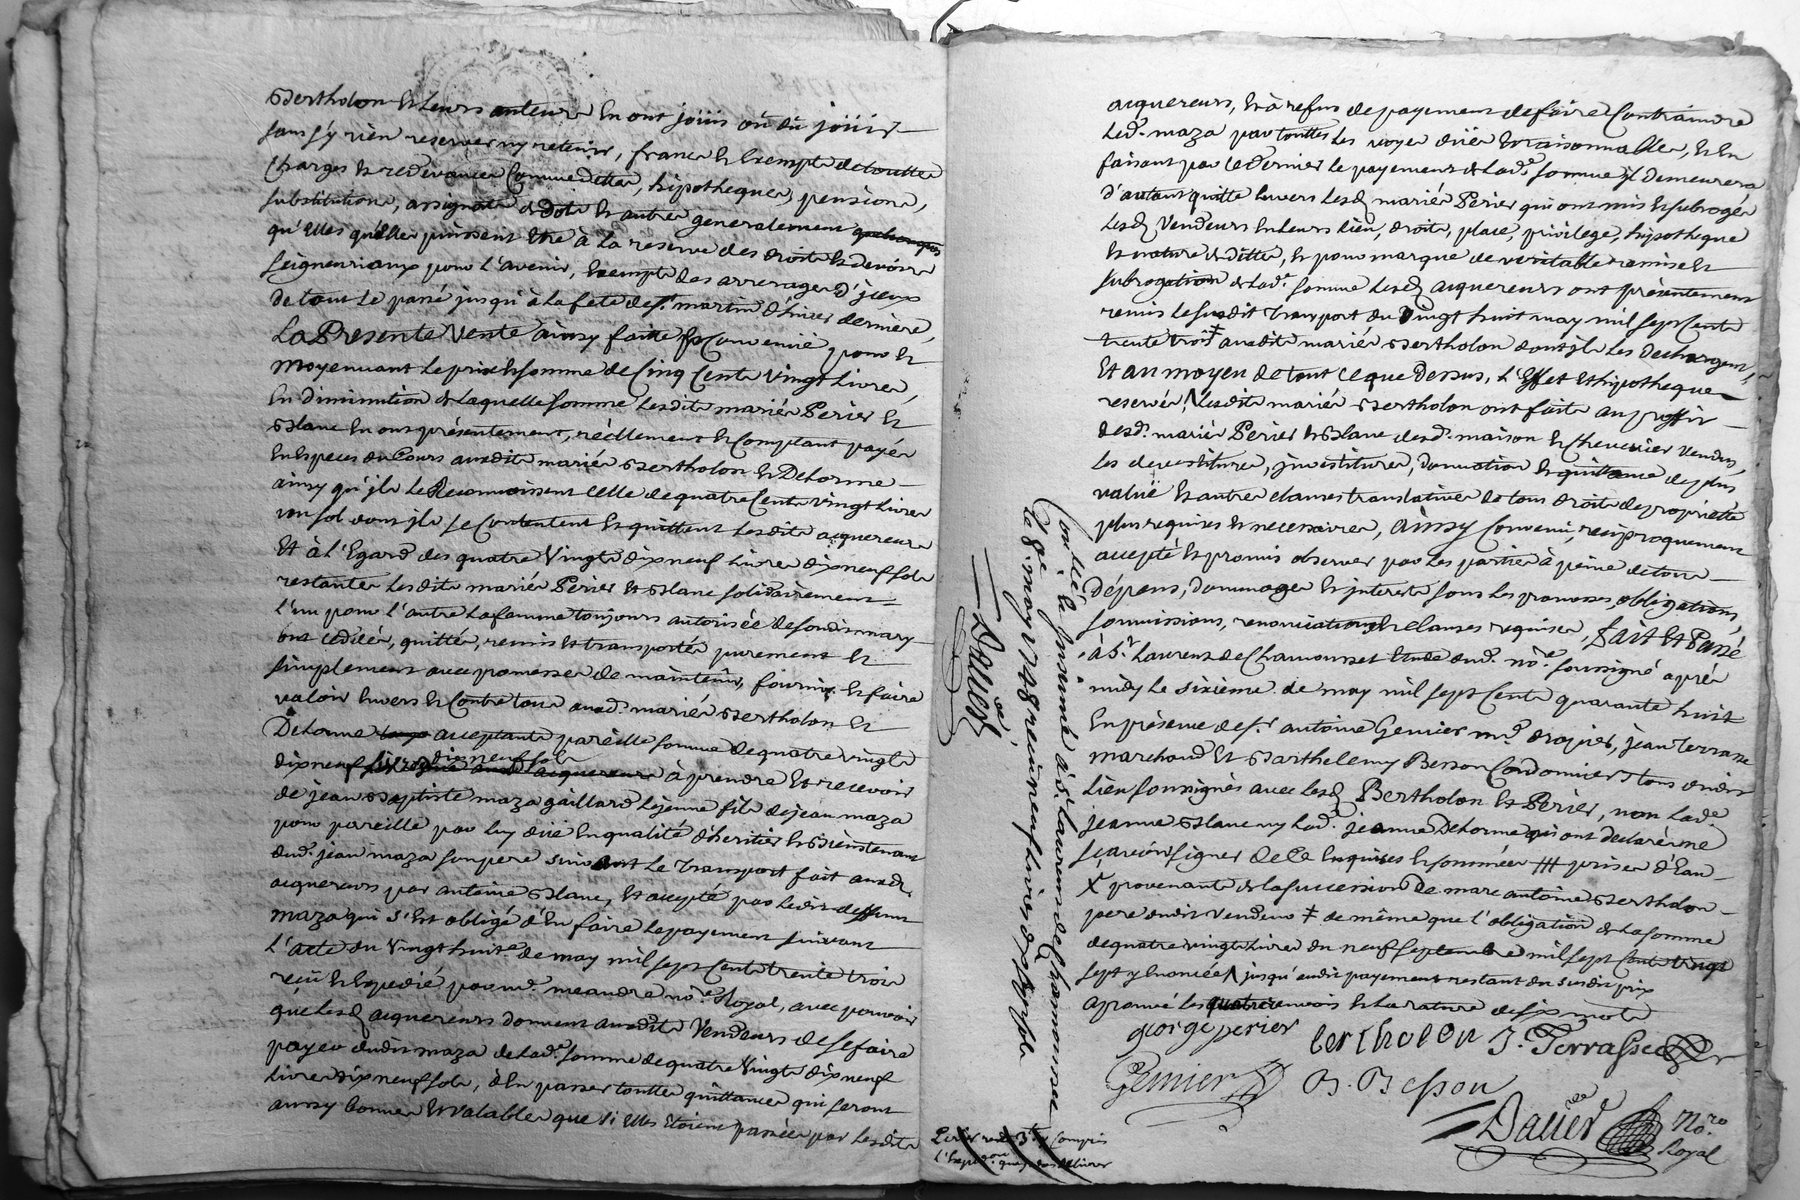 Bertholon et leurs auteurs en ont joüis où dû joüir
sans s'y rien reserver ny retenir, franc et exempts de touttes
charges et redevances commedittes, hipotheques, pensions,
substitutions, assignats de dots et autres generalement quelconques
qu'elles qu'elles puissent être à la reserve des droits et devoirs
seigneuriaux pour l'avenir, exempts des arrerages d'jceux
de tout le passé jusqu'à la fete de st. martin d'hiver derniere,
La Presente vente ainsy faitte et convenüe pour et
moyennant le prix et somme de Cinq Cents vingt Livres,
en diminution de laquelle somme lesdits mariés Perier et
Blanc en ont présentement, réellement et comptant payés
en Especes du Cours auxdits mariés Bertholon et Delorme
ainsy qu'jls le Reconnoissent celle de quatre Cents vingt Livres
un sol dont jls se contentent et quittent lesdits acquereurs
Et à l'Egard des quatre Vingts dixneuf Livres dixneuf sols
restantes lesdits mariés Perier et Blanc solidairement
l'un pour l'autre la femme toujours autorisée de sondit mary
ont cédées, quittés, remis et transportés purement et
simplement avec promesses de maintenir, fournir et faire
valoir envers et contre tous auxd. mariés Bertholon et
Delorme acceptants pareille somme de quatre vingts
dixneuf livres dixneuf sols à prendre et recevoir
de jean Baptiste maza gaillard lejeune fils de jean maza
pour pareille par luy düe en qualité d'heritier et Biens tenant
dud. jean maza son pere suivant le transport fait auxd.
acquereurs par antoine Blanc, et accepté par ledit deffunt
maza qui s'est obligé d'En faire le payement suivant
l'acte du Vingt huite. de may mil sept Cents trente trois
reçû et Expedié par me. meandre nore. Royal, avec pouvoir
que lesd. acquereurs donnent auxdits Vendeurs de se faire
payer dudit maza de lade. somme de quatre Vingts dixneuf
Livres dixneuf sols, d'En passer touttes quittances qui seront
aussy bonnes et valables que si elles étoient passées par lesdits
acquereurs, et à refus de payement de faire Contraindre
led. maza par touttes les voyes dües et raisonnables, et En
faisant par ce dernier le payement de lade. somme jl demeurera
d'autant quitte envers lesd. mariés Perier qui ont mis et subrogés
lesd. Vendeurs en leurs lieu, droits, place, privilege, hipotheque
et nature de dittes, et pour marque de veritable remise et
subrogation de lade. somme lesd. acquereurs ont présentement
remis le susdit transport du Vingt huit may mil sept Cents
trente trois ‡ auxdits mariés Bertholon dont jls les dechargent,
Et au moyen de tout ce que dessus, l'Effet et hipotheque
reservés, lesdits mariés Bertholon ont faits au proffit
desd. mariés Perier et Blanc desd. maison et chenevier vendus,
les devestitures, jnvestitures, donnation et quittance de plus
valuë et autres clauses translatives de tous droits de proprietté
plus requises et necessaires, ainsy Convenu, reciproquement
accepté et promis observer par les parties à peine de tous
dépens, dommages et jnterets sous les promesses, obligations,
soumissions, renonciations et clauses requises, Fait et Passé
à St. Laurent de Chamousset Etude dud. nore. soussigné aprés
midy le sixieme de may mil sept Cents quarante huit
En présence de sr. antoine Genier md. drapier, jean terrasse
marchand et Barthelemy Besson Cordonnier tous dudit
Lieu soussignés avec lesd. Bertholon et Perier, non lade.
jeanne Blanc ny lad. jeanne Delorme qui ont declarés ne
sçavoir signer de ce enquises et sommées ‡‡‡ prises d'Eau
X provenants de la succession de marc antoine Bertholon
pere dudit Vendeur ‡ de même que l'obligation de la somme
de quatre vingts livres du neuf septembre mil sept Cents vingt
sept y enoncée, jusqu'audit payement restant du susdit prix
aprouvé les quatre renvois et la rature de six mots
george perier bertholon J. Terrasse
Genier B. Besson
Dauer Nore. Royal
Controllé et jnsinué à St. Laurent de Chamousset
le 8e. may 1748 reçu neuf livres dix sols
Dauer